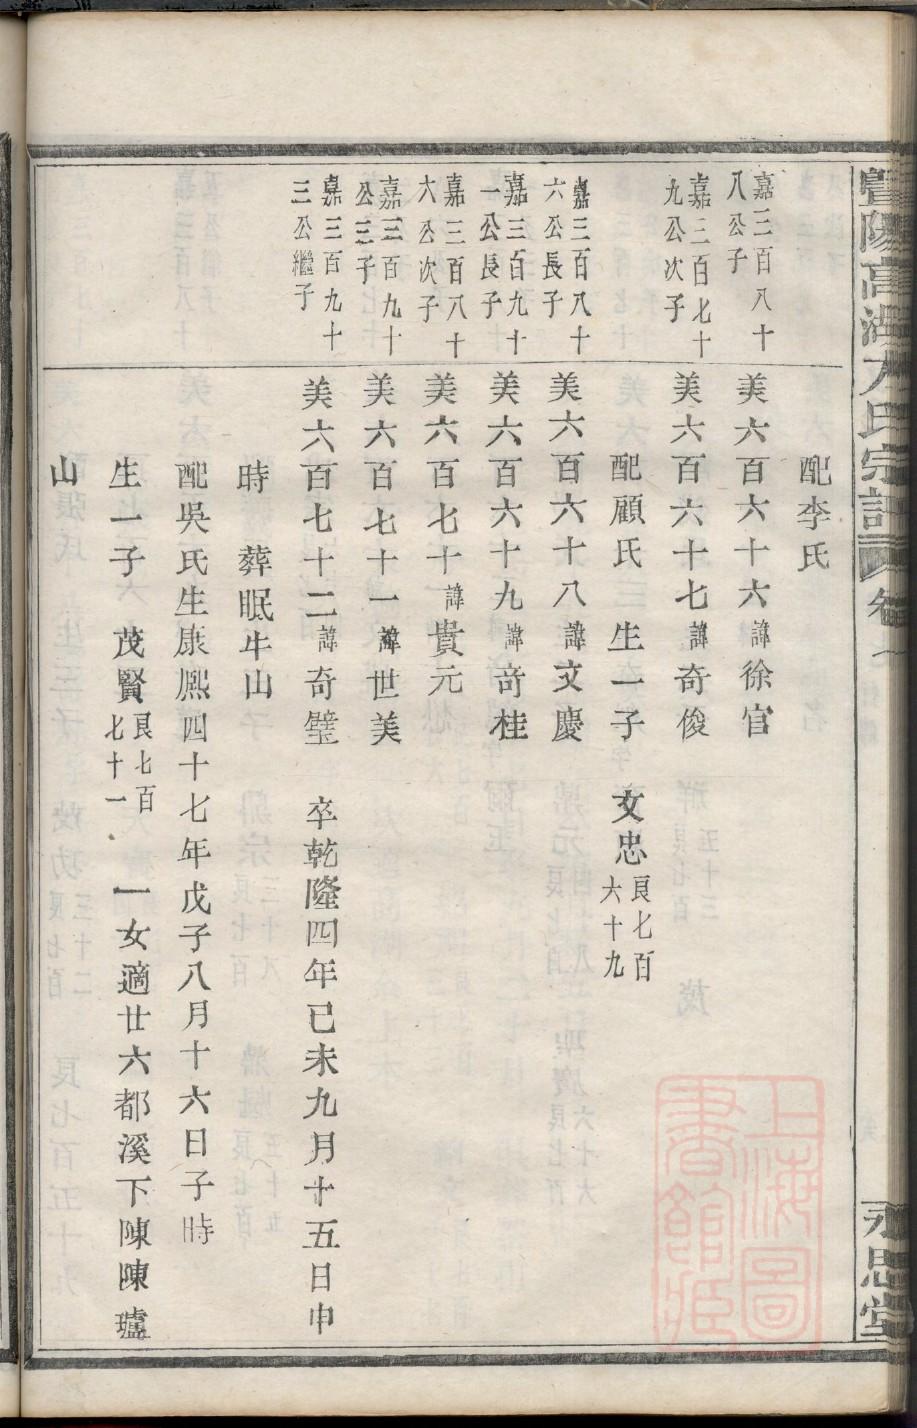 暨陽高湖方氏宗譜 卷之七
永思堂
配李氏
嘉三百八十
八公子
美六百六十六諱徐官
嘉三百七十
九公次子
美六百六十七諱奇俊
配顧氏 生一子 文忠良七百六十九
嘉三百八十
六公長子
美六百六十八諱文慶
嘉三百九十
一公長子
美六百六十九諱奇桂
嘉三百八十
六公次子
美六百七十諱貴元
嘉三百九十
公三子
美六百七十一諱世美
嘉三百九十
三公繼子
美六百七十二諱奇璧 卒乾隆四年已未九月十五日申
時 葬眠牛山
配吳氏生康熈四十七年戊子八月十六日子時
生一子 茂賢良七百七十一 一女適廿六都溪下陳陳瓐
山
上海圖書館藏